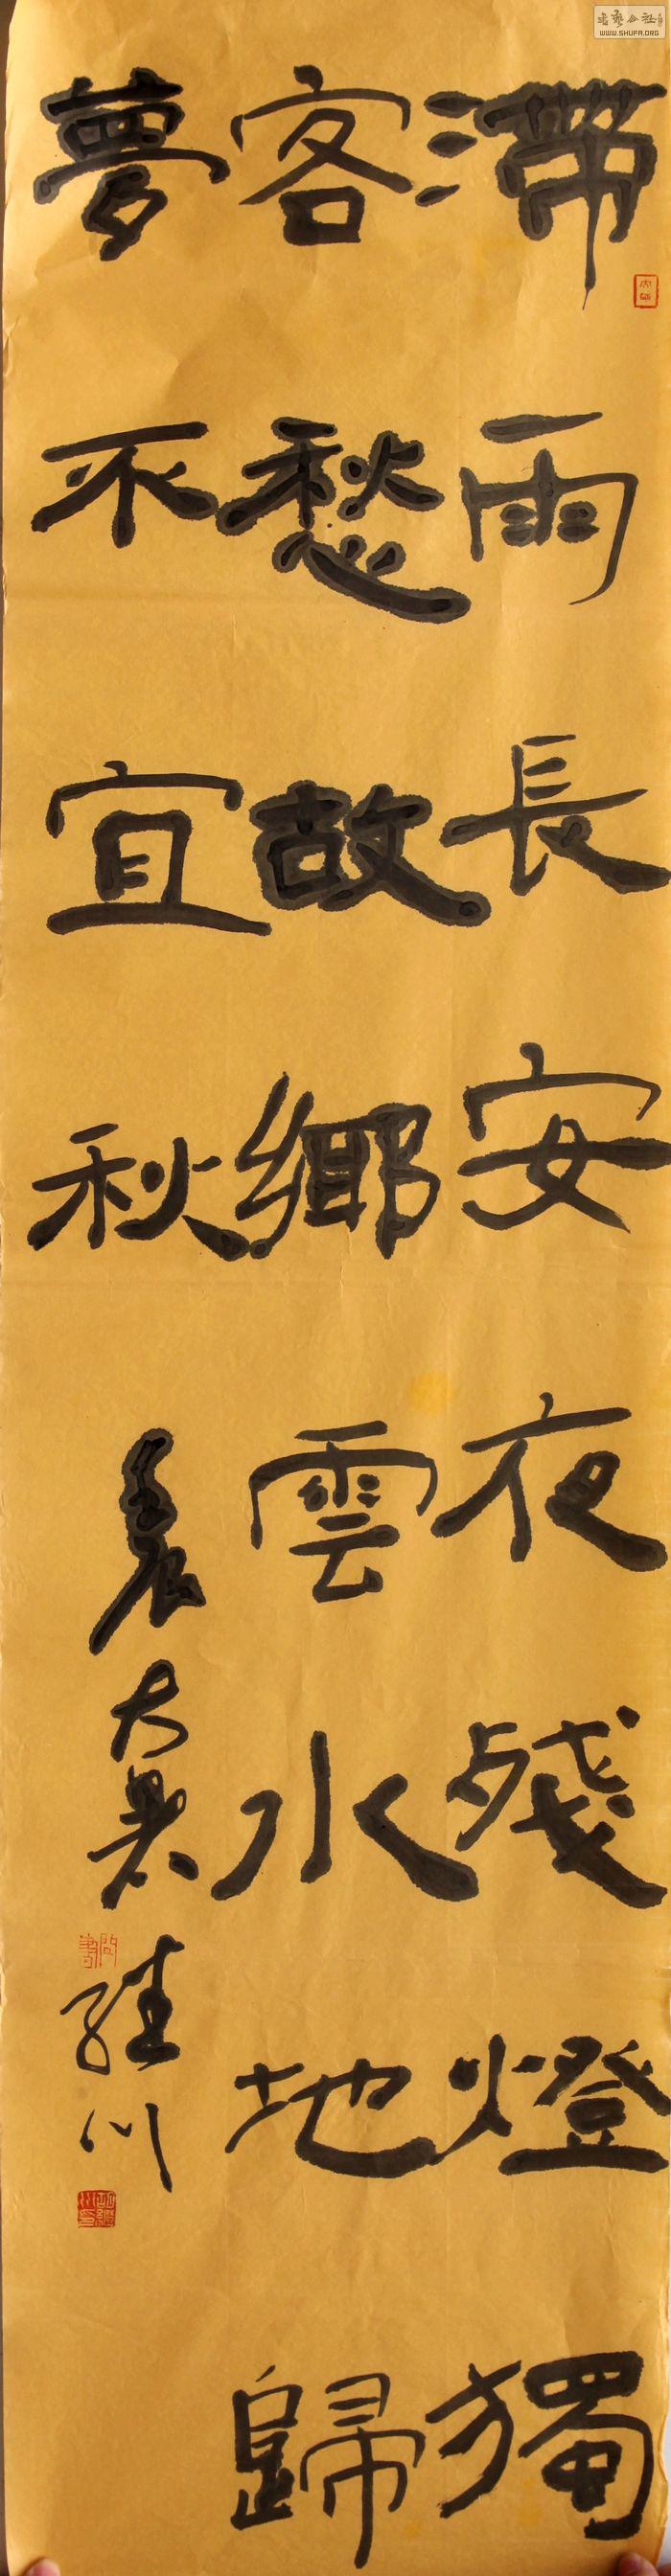 書藝公社
WWW.SHUFA.ORG
滯雨長安夜殘燈獨
客愁故鄉雲水地歸
夢不宜秋
壬辰大暑 川